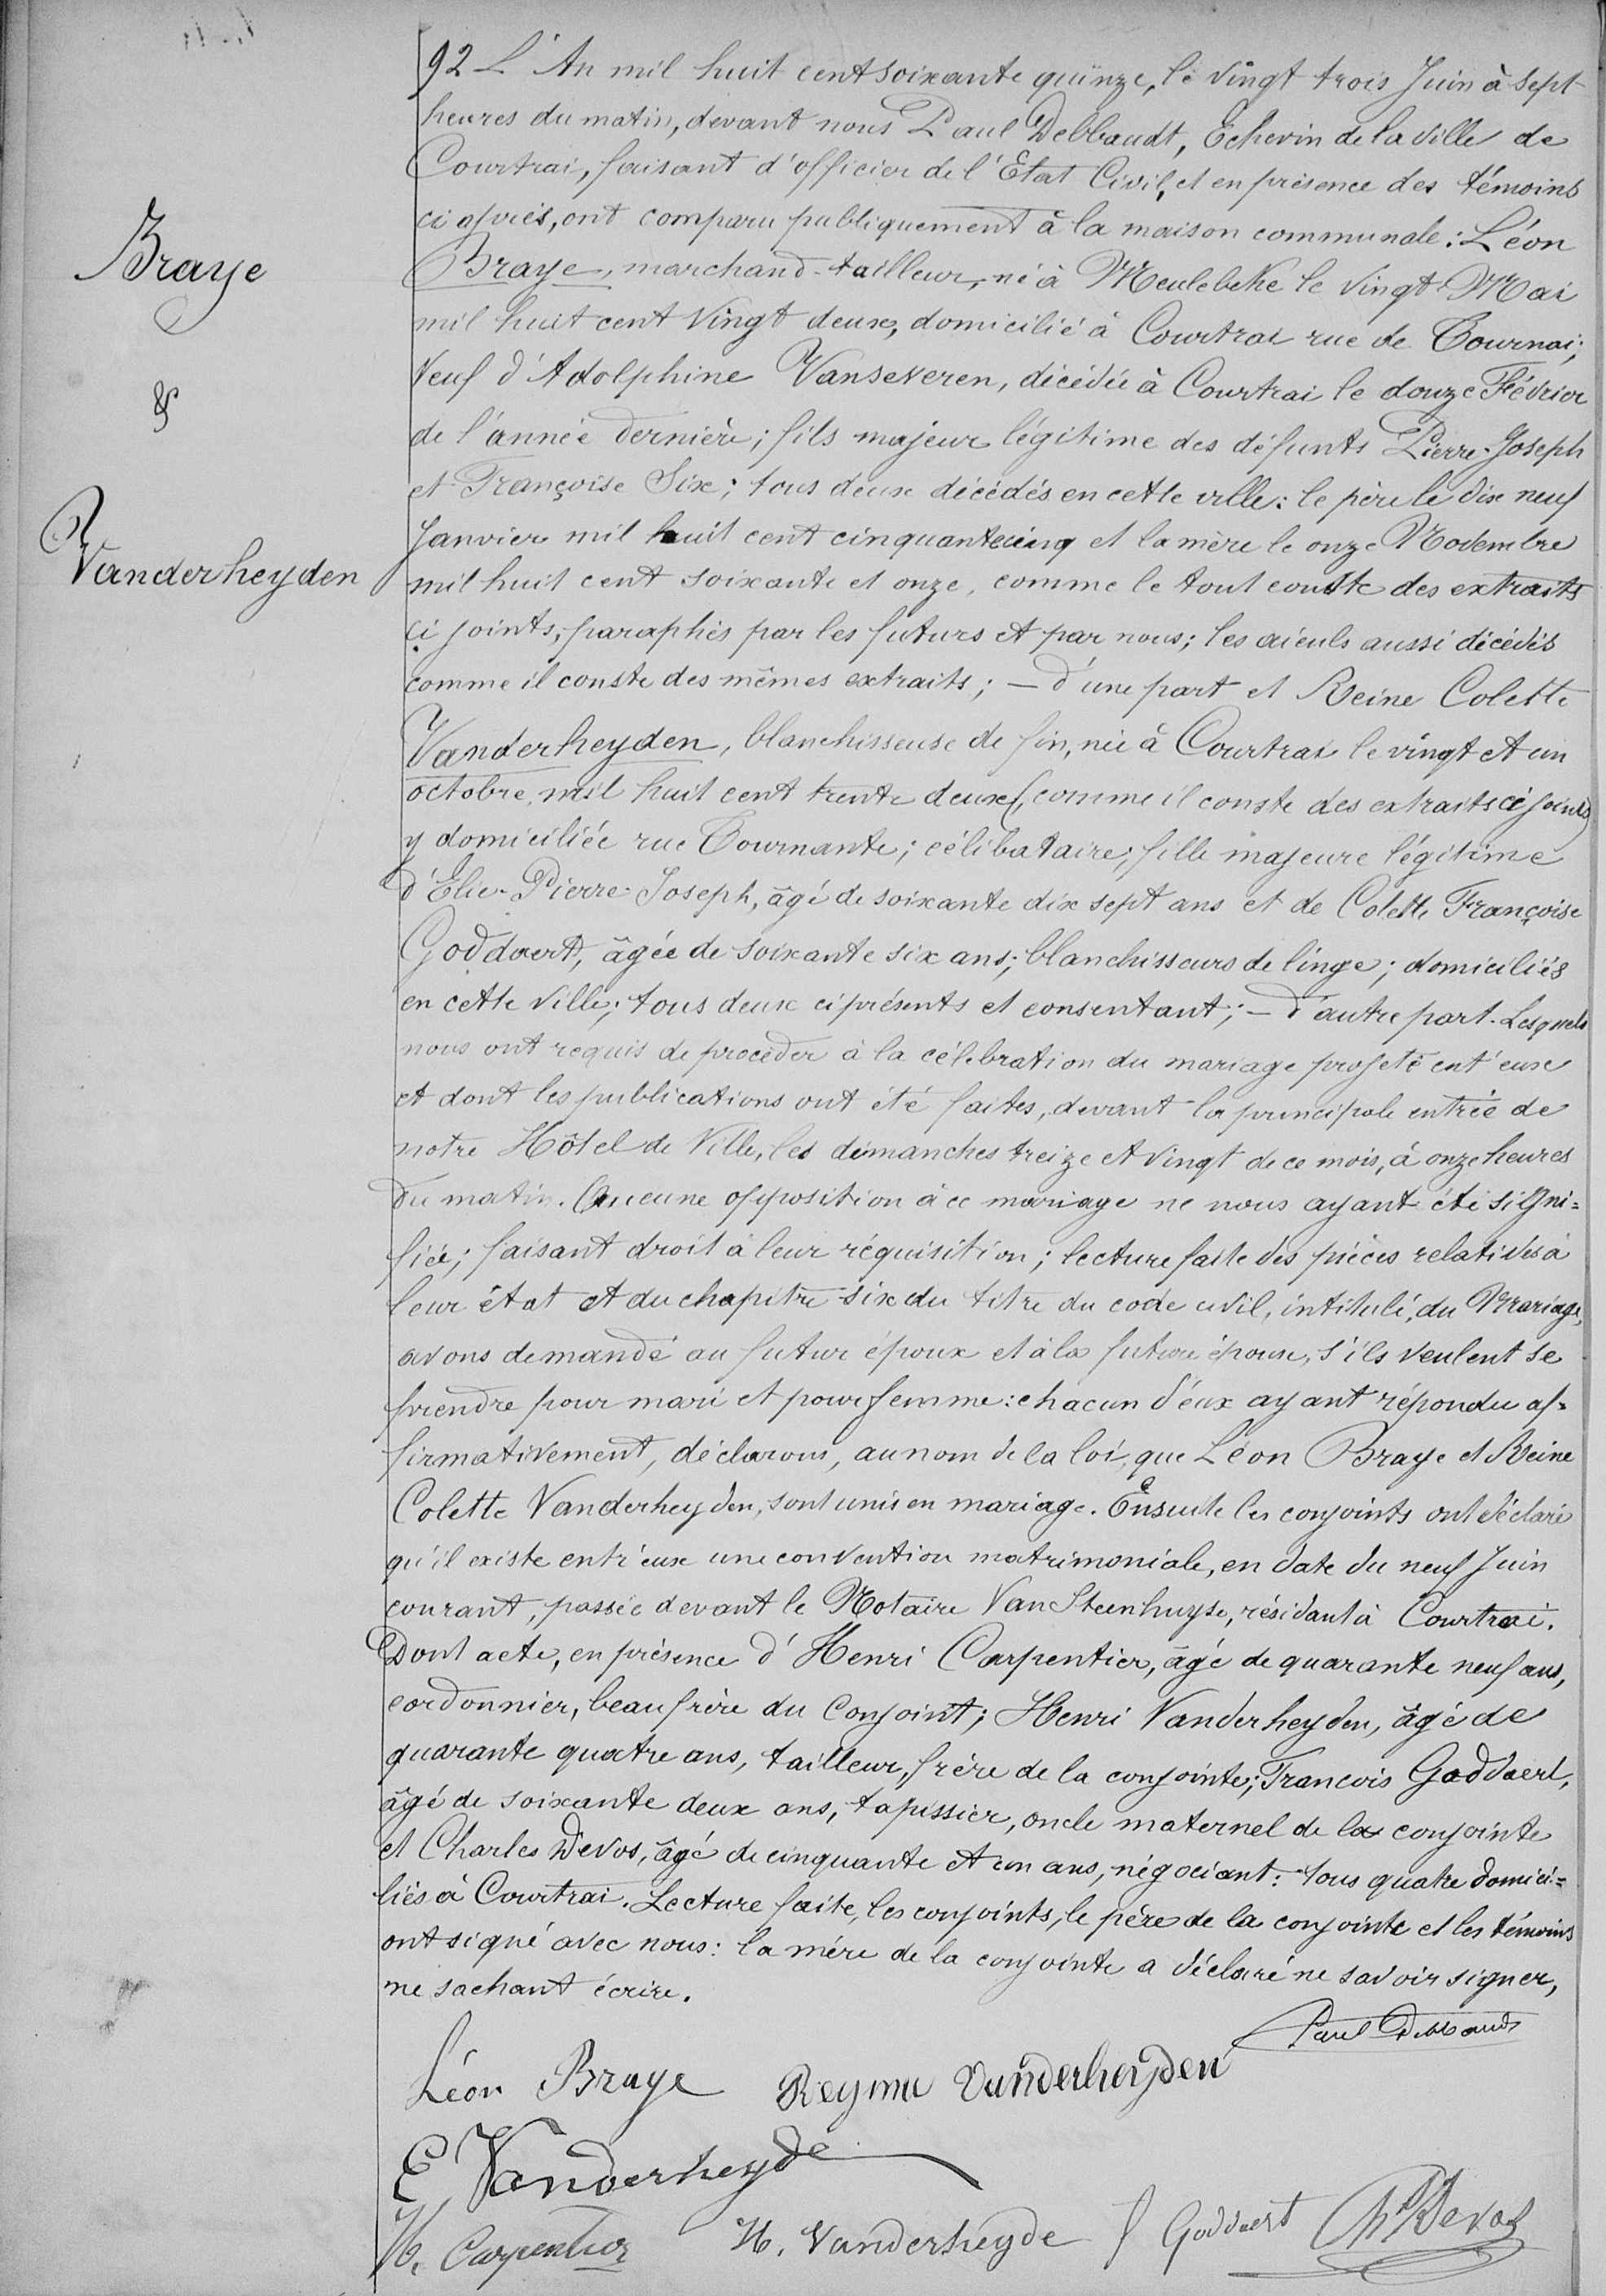 92 L'An mil huit cent soixante quinze, le vingt trois Juin à sept
heures du matin, devant nous Paul Debbaudt, Echevin de la ville de
Courtrai, faisant d'officier de l'Etat Civil, et en présence des témoins
ci après, ont comparu publiquement à la maison communale: Léon
Braye, marchand-tailleur, né à Meulebeke le vingt Mai
mil huit cent vingt deux, domicilié à Courtrai rue de Tournai;
Veuf d'Adolphine Vanseveren, décédée à Courtrai le douze Février
de l'année dernière; fils majeur légitime des défunts Pierre-Joseph
et Françoise Six; tous deux décédés en cette ville: le père le dix neuf
Janvier mil huit cent cinquantecinq et la mère le onze Novembre
mil huit cent soixante et onze, comme le tout conste des extraits
ci joints, paraphés par les futurs et par nous; les aïeuls aussi décédés
comme il conste des mêmes extraits; — d'une part et Reine Colette
Vanderheyden, blanchisseuse de fin, née à Courtrai le vingt et un
octobre mil huit cent trente deux (comme il conste des extraits ci joints)
y domiciliée rue Tournante; célibataire; fille majeure légitime
d'Elie-Pierre-Joseph, âgé de soixante dix sept ans et de Colette Françoise
Goddaert, âgée de soixante six ans; blanchisseurs de linge; domiciliés
en cette ville; tous deux ci présents et consentant; — d'autre part. Lesquels
nous ont requis de procéder à la célébration du mariage projeté ent'eux
et dont les publications ont été faites, devant la principale entrée de
notre Hôtel de Ville, les dimanches treize et vingt de ce mois, à onze heures
du matin. Aucune opposition à ce mariage ne nous ayant été signi=
fiée; faisant droit à leur réquisition; lecture faite des pièces relatives à
leur état et du chapitre six du titre du code civil, intitulé, du Mariage,
avons demandé au futur époux et à la future épouse, s'ils veulent se
prendre pour mari et pour femme: chacun d'eux ayant répondu af=
firmativement, déclarons, au nom de la loi, que Léon Braye et Reine
Colette Vanderheyden, sont unis en mariage. Ensuite les conjoints ont déclaré
qu'il existe entr'eux une convention matrimoniale, en date du neuf Juin
courant, passée devant le Notaire VanSteenhuyse, résidant à Courtrai.
Dont acte, en présence d'Henri Carpentier, âgé de quarante neuf ans,
cordonnier, beaufrère du Conjoint; Henri Vanderheyden, âgé de
quarante quatre ans, tailleur, frère de la conjointe; Francois Goddaert,
âgé de soixante deux ans, tapissier, oncle maternel de la conjointe
et Charles Devos, âgé de cinquante et un ans, négociant: tous quatre domici=
liés à Courtrai. Lecture faite, les conjoints, le père de la conjointe et les témoins
ont signé avec nous: la mère de la conjointe a déclaré ne savoir signer,
ne sachant écrire.
Paul Debbaudt
Léon Braye Reyne Vanderheyden
E Vanderheyde
H. Carpentier H. Vanderheyde f Goddaert Ch Devos
Braye
&
Vanderheyden